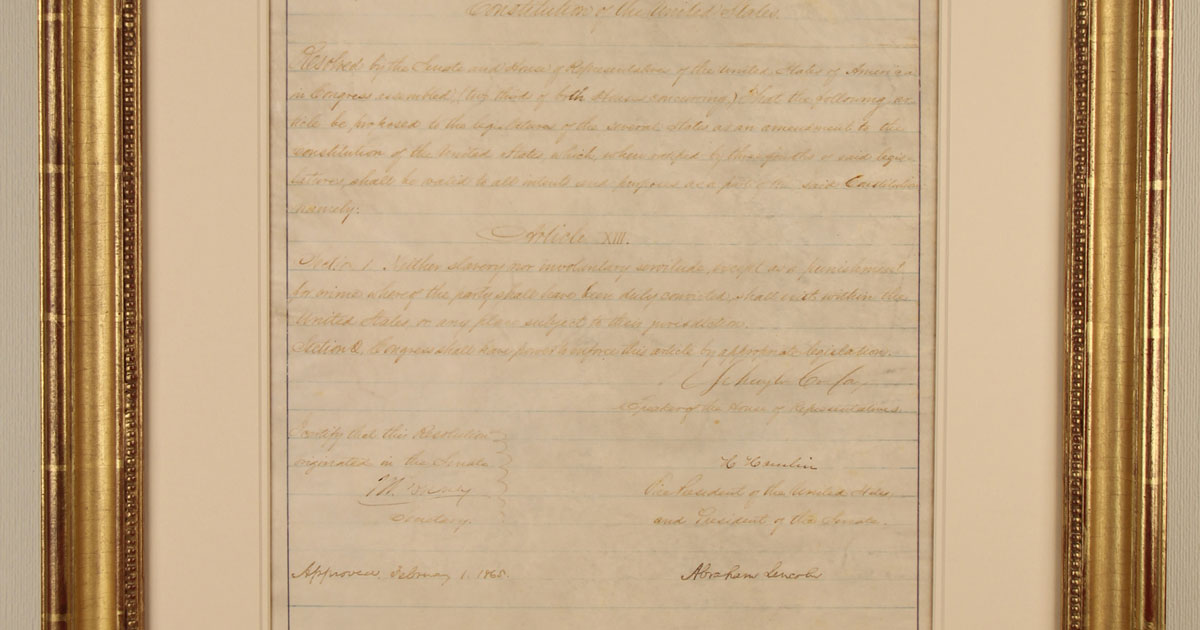 Constitution of the United States.
Resolved by the Senate and House of Representatives of the United States of America
in Congress assembled, (two thirds of both Houses concurring,) That the following ar-
ticle be proposed to the legislatures of the several States as an amendment to the
constitution of the United States, which, when ratified by three fourths of said legis-
latures, shall be valid to all intents and purposes as a part of the said Constitution
namely:
Article XIII.
Section 1. Neither slavery nor involuntary servitude, except as a punishment
for crime whereof the party shall have been duly convicted, shall exist within the
United States, or any place subject to their jurisdiction.
Section 2. Congress shall have power to enforce this article by appropriate legislation.
Schuyler Colfax
Speaker of the House of Representatives.
I certify that this Resolution
originated in the Senate
J W Forney
Secretary.
H Hamlin
Vice President of the United States,
and President of the Senate.
Approved, February 1. 1865.
Abraham Lincoln